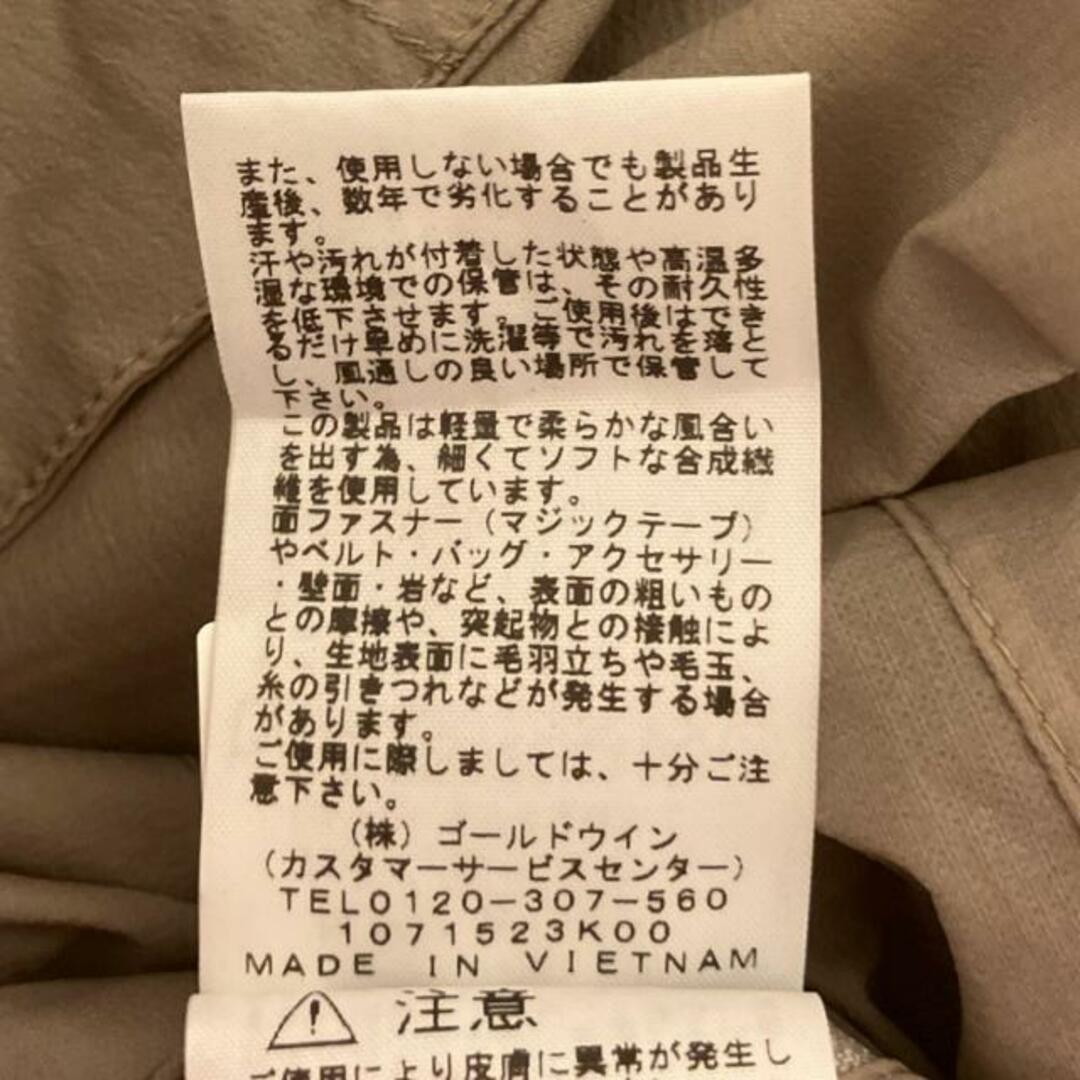 また、使用しない場合でも製品生
産後、数年で劣化することがあり
ます。
汗や汚れが付着した状態や高温多
湿な環境での保管は、その耐久性
を低下させます。ご使用後はでき
るだけ早めに洗濯等で汚れを落と
し、風通しの良い場所で保管して
下さい。
この製品は軽量で柔らかな風合い
を出す為、細くてソフトな合成繊
維を使用しています。
面ファスナー（マジックテープ）
やベルト・バッグ・アクセサリー
・壁面・岩など、表面の粗いもの
との摩擦や、突起物との接触によ
り、生地表面に毛羽立ちや毛玉、
糸の引きつれなどが発生する場合
があります。
ご使用に際しましては、十分ご注
意下さい。
（株）ゴールドウイン
（カスタマーサービスセンター）
TEL0120−307−560
1071523K00
MADE IN VIETNAM
注意
ご使用により皮膚に異常が発生し